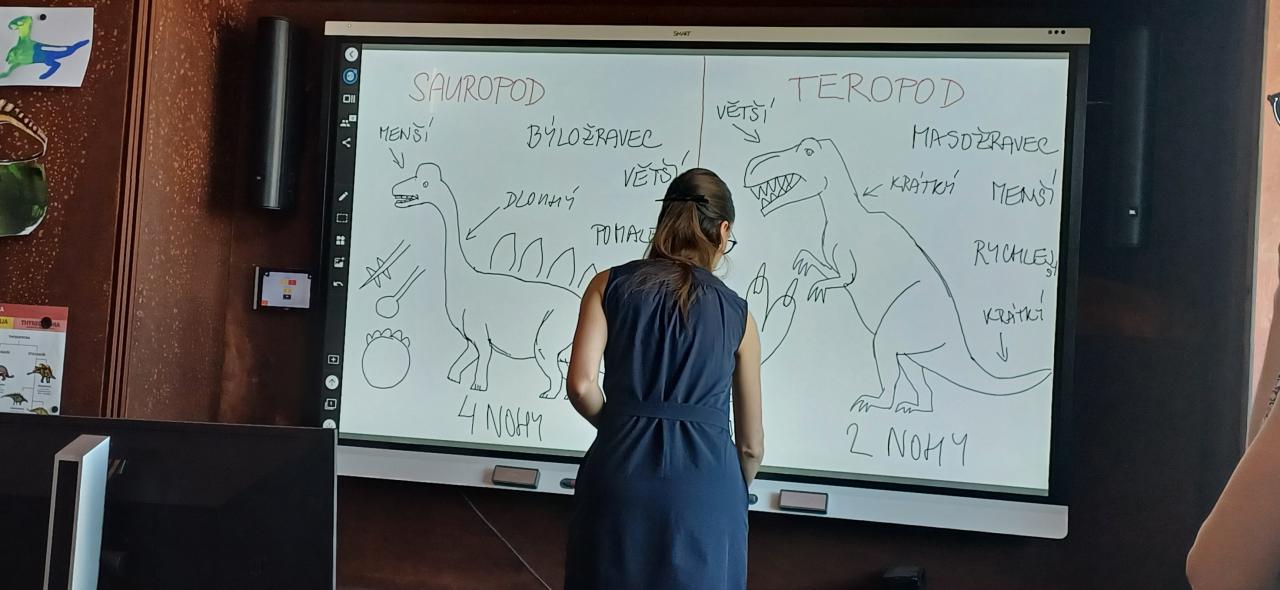 SMART
SAUROPOD
MENŠÍ
BÝLOŽRAVEC
VĚTŠÍ
DLOUHÝ
POMALE
4 NOHY
TEROPOD
VĚTŠÍ
MASOŽRAVEC
KRÁTKÝ
MENŠÍ
RYCHLEJ
ŠÍ
KRÁTKÝ
2 NOHY